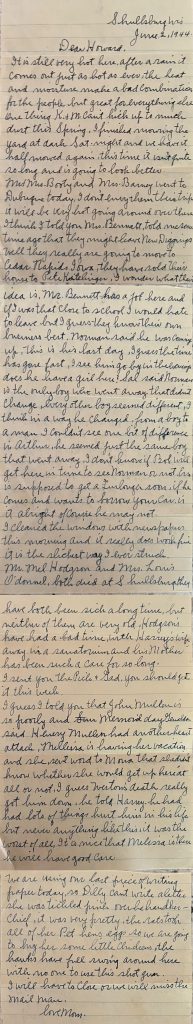 Shullsburg Wis
June 2, 1944
Dear Howard.
It is still very hot here, after a rain it
comes out just as hot as ever the heat
and moisture make a bad combination
for the people but great for everything else
one thing K + M can't kick up to much
dust this Spring. I finished mowing the
yard at dark Sat. night and we have it
half mowed again this time it isn't quite
so long and is going to look better
Mr Mrs Booty and Mrs Barney went to
Dubuque today, I don't envy them their trip
it will be very hot going around over there
I think I told you Mrs. Bennett, told me some
time ago that they might leave New Diggings
well they really are going to move to
Cedar Rapids Iowa they have sold their
house to Pete I wonder what their
idea is, Mr. Bennett has a job here and
if I was that close to school I would hate
to leave but I guess they know their own
business best. Norman said he was coming
up, this is his last day, I guess the time
has gone fast, I see him go by in the
does he have a girl here? Sal said Norman
is the only boy who went away that didn't
change, every other boy seemed different, I
think in a way he changed, from a boy to
a man. I couldn't see one bit of difference
in Arthur, he seemed just the same boy
that went away. I don't know if Bob will
get here in time to see Norman or not his
is supposed to get a furlough soon, if he
comes and wants to borrow your car is
it alright of course he may not.
I cleaned the windows with newspapers
this morning and it really does work fine
it is the slickest way I ever struck
Mr. Mel Hodgson and Mrs. Louis
O'donnel, both died at Shullsburg they
have both been sick a long time, but
neither of them are very old. Hodgsons
have had a bad time, with Harrys wife
away in a sanatorium and his Mother
has been such a care for so long.
I send you the Pick + Gad, you should get
it this week
I guess I told you that John Mullen is
so poorly and Memorial day
said Henry Mullen had another heart
attack, Mellissa is having her vacation
and she sent word to Mona that she didn't
know whether she would get up here at
all or not, I guess death really
got him down, he told Harry he had
had lots of things hurt him in his life
but never anything like this, it was the
worst of all. It is nice that Melissa is there
he will have good care
we are using our last piece of writing
paper today, so Dilly can't write all tho
she was tickled pink over her handker-
chief, it was very pretty. the rats took
all of her Pet hens eggs so we are going
to buy her some little chickens the
hawks have full swing around here
with no one to use the shot gun.
I will have to close or I will miss the
mail man.
love Mom.